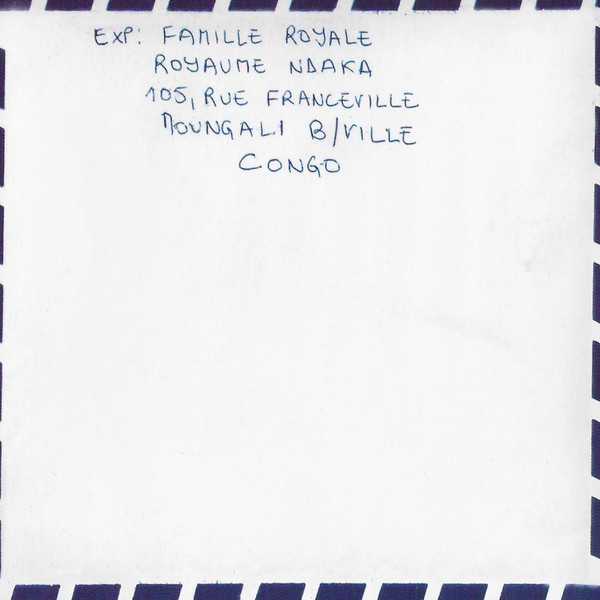 EXP: FAMILLE ROYALE
ROYAUME NDAKA
105, RUE FRANCEVILLE
MOUNGALI B/VILLE
CONGO